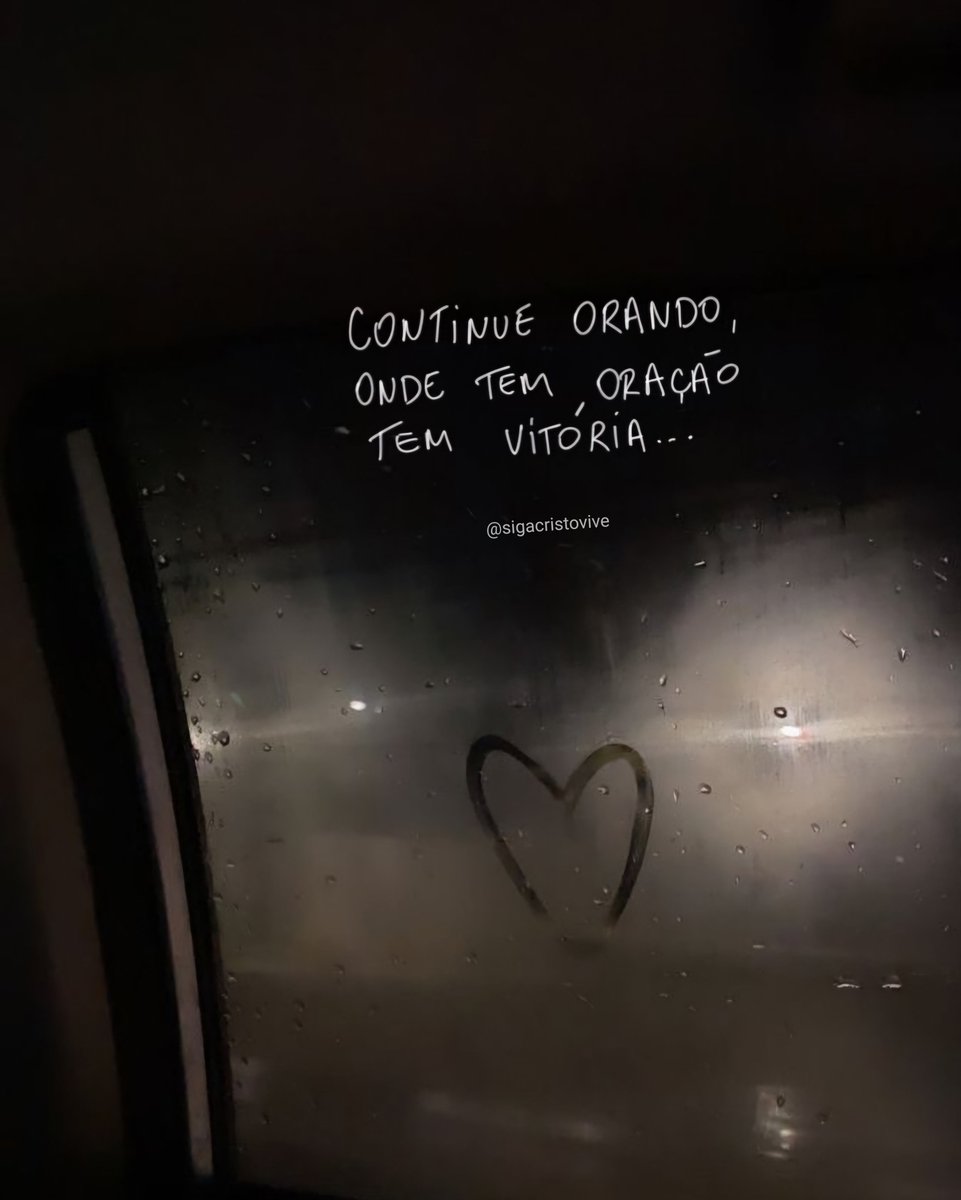 CONTINUE ORANDO,
ONDE TEM ORAÇÃO
TEM VITÓRIA...
@sigacristovive